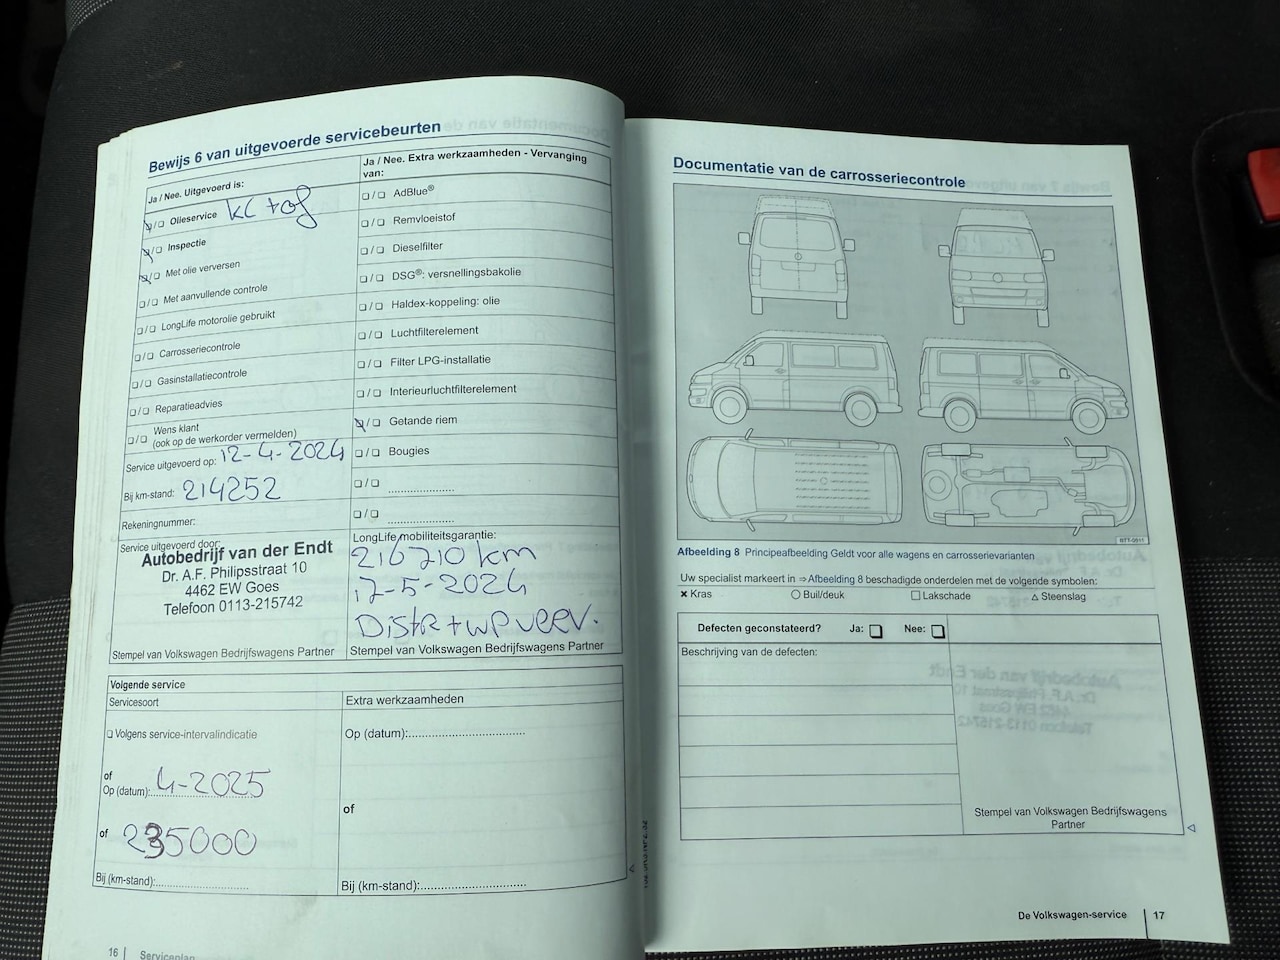 Bewijs 6 van uitgevoerde servicebeurten
Ja / Nee. Uitgevoerd is:
❑/❑ Olieservice
❑/❑ Inspectie
❑/❑ Met olie verversen
❑/❑ Met aanvullende controle
❑/❑ LongLife motorolie gebruikt
❑/❑ Carrosseriecontrole
❑/❑ Gasinstallatiecontrole
❑/❑ Reparatieadvies
❑/❑ Wens klant
(ook op de werkorder vermelden)
Service uitgevoerd op: 12-4-2024
Bij km-stand: 214252
Rekeningnummer:
Service uitgevoerd door:
Autobedrijf van der Endt
Dr. A.F. Philipsstraat 10
4462 EW Goes
Telefoon 0113-215742
Stempel van Volkswagen Bedrijfswagens Partner
Ja / Nee. Extra werkzaamheden - Vervanging
van:
❑/❑ AdBlue®
❑/❑ Remvloeistof
❑/❑ Dieselfilter
❑/❑ DSG®: versnellingsbakolie
❑/❑ Haldex-koppeling: olie
❑/❑ Luchtfilterelement
❑/❑ Filter LPG-installatie
❑/❑ Interieurluchtfilterelement
❑/❑ Getande riem
❑/❑ Bougies
❑/❑ ....................
❑/❑ ....................
LongLife mobiliteitsgarantie:
216710 km
17-5-2024
Distr + WP verv.
Stempel van Volkswagen Bedrijfswagens Partner
Volgende service
Servicesoort
❑ Volgens service-intervalindicatie
of
Op (datum): 4-2025
of 235000
Bij (km-stand):
Extra werkzaamheden
Op (datum):
of
Bij (km-stand):
16 | Serviceplan
Documentatie van de carrosseriecontrole
BTT-0011
Afbeelding 8 Principeafbeelding Geldt voor alle wagens en carrosserievarianten
Uw specialist markeert in ⇒Afbeelding 8 beschadigde onderdelen met de volgende symbolen:
✖ Kras ○ Buil/deuk □ Lakschade △ Steenslag
Defecten geconstateerd? Ja: ❑ Nee: ❑
Beschrijving van de defecten:
Stempel van Volkswagen Bedrijfswagens
Partner
De Volkswagen-service | 17